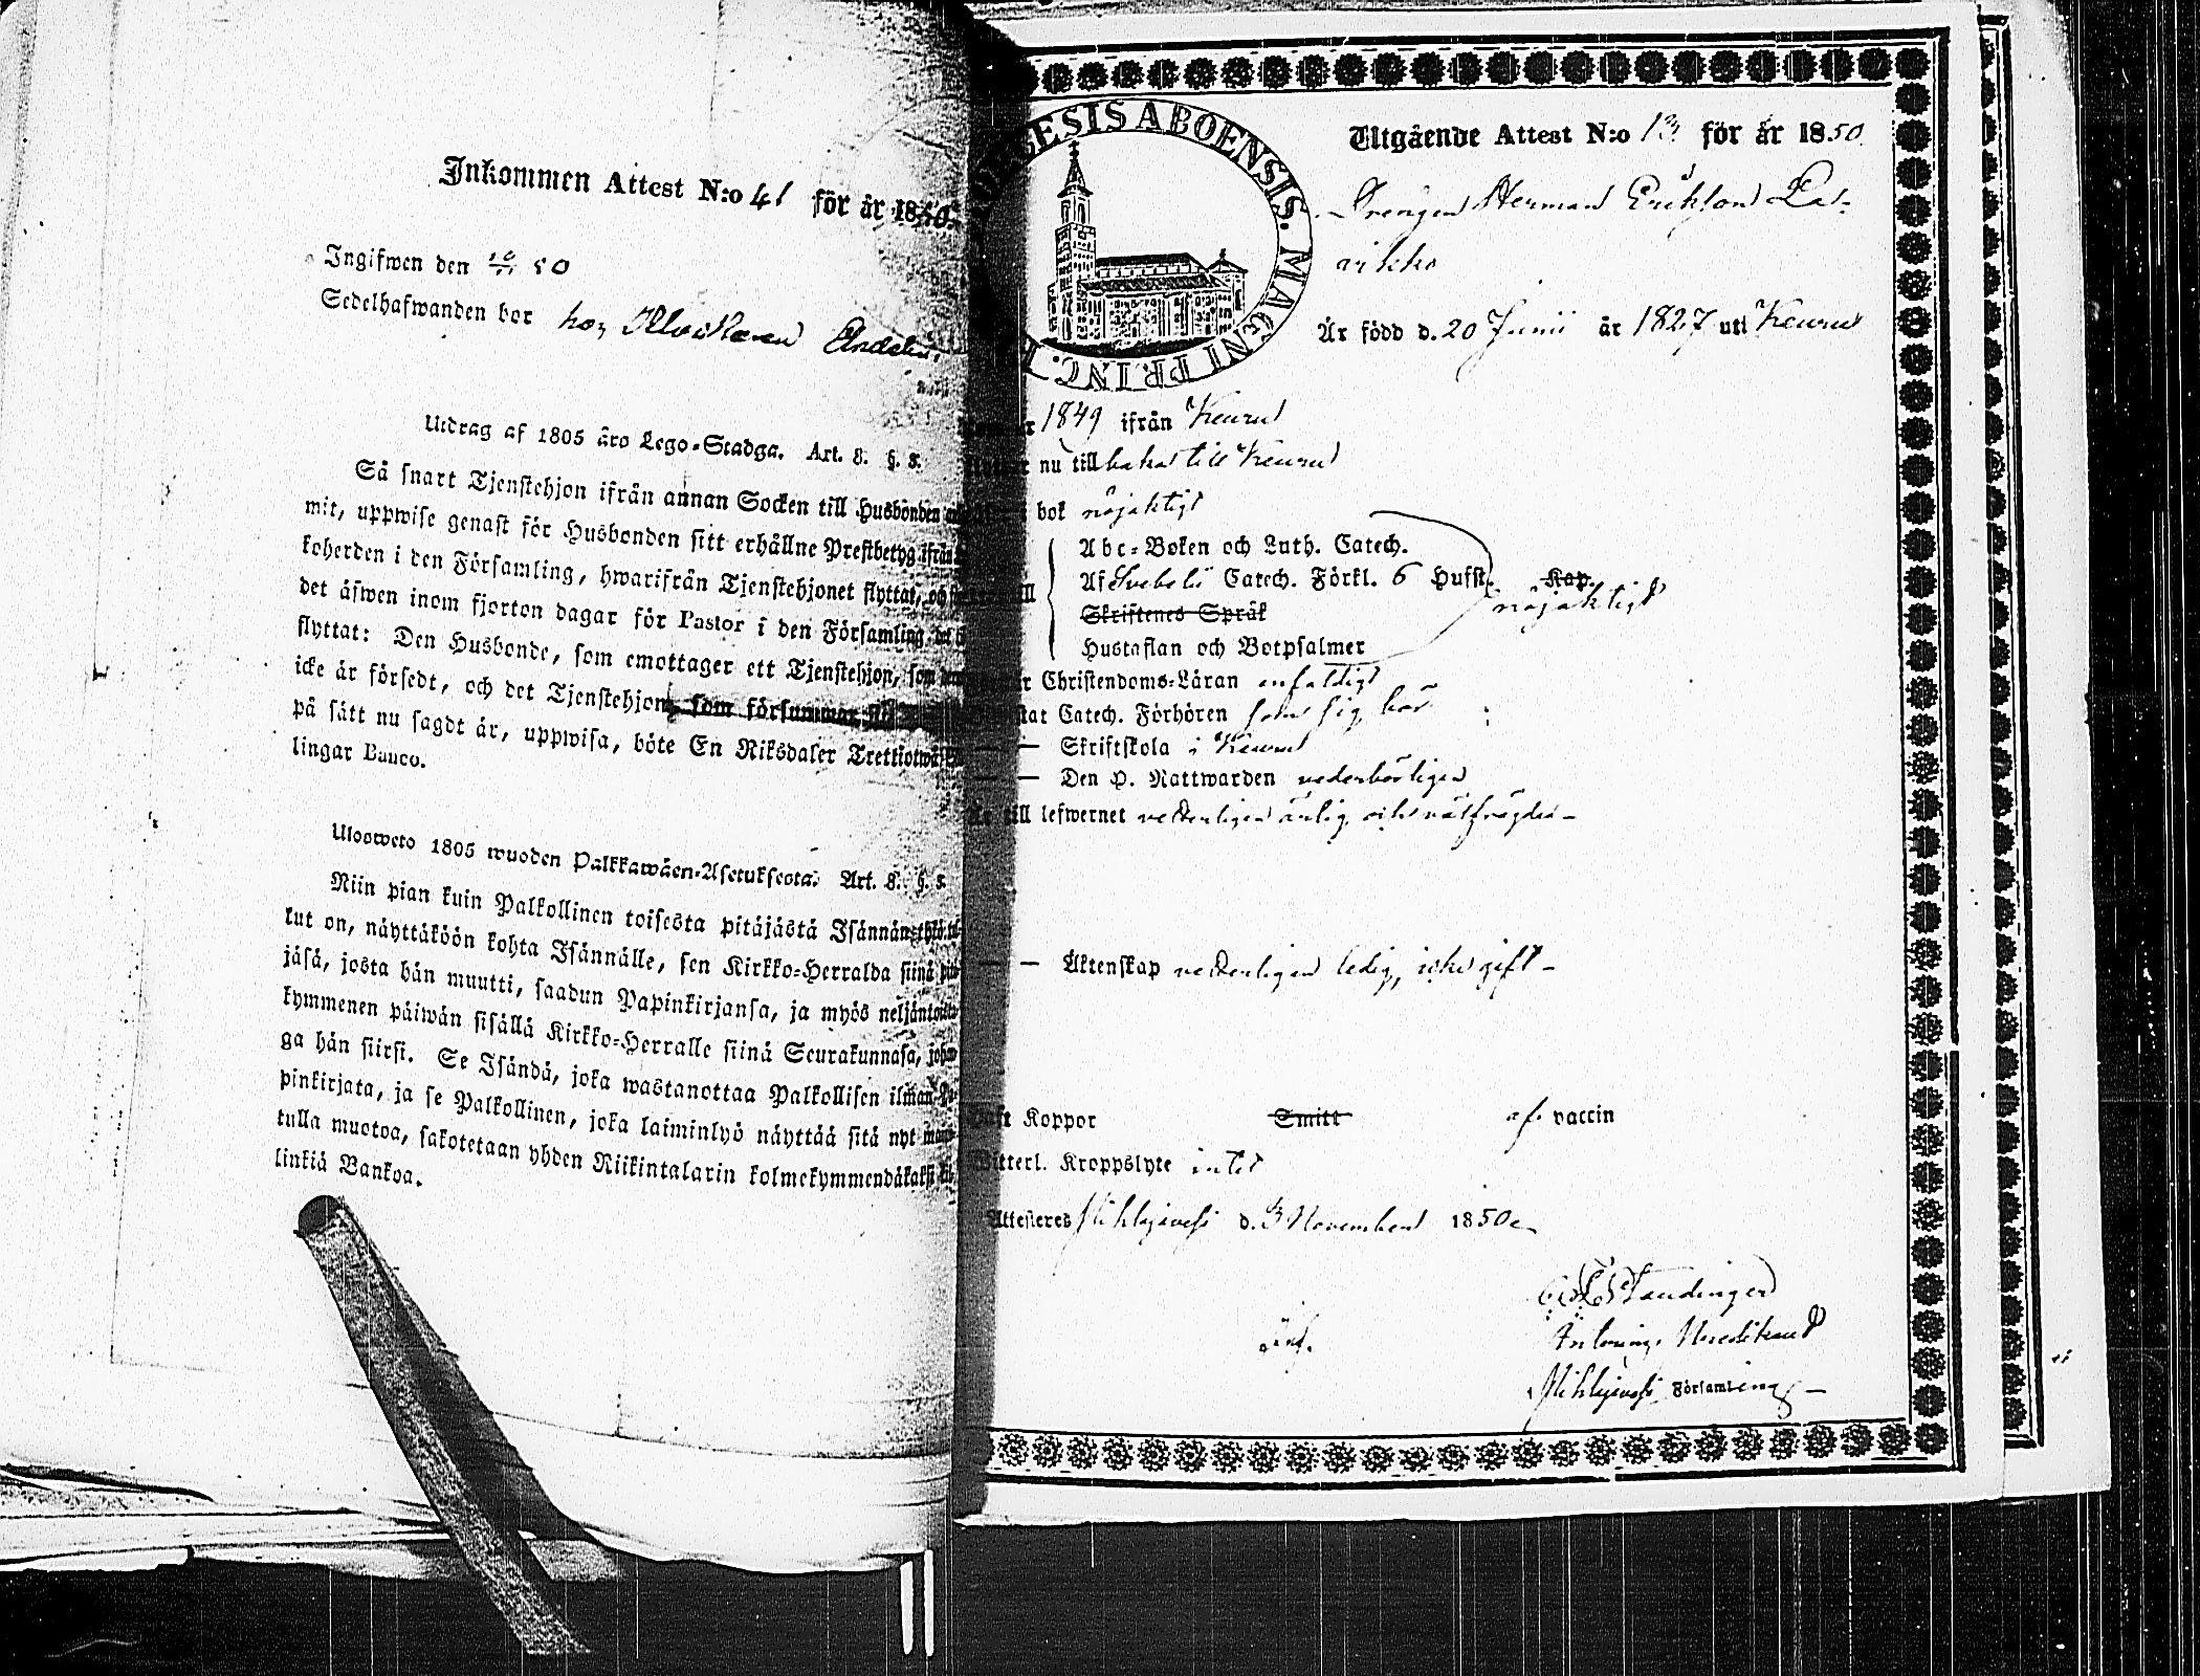 Inkommen Attest N:o 41 för år 1850.
Ingifwen den 50
Sedelhafwanden bor hos
Utdrag af 1805 års Lego-Stadga. Art. 8. §. 5.
Så snart Tjenstehjon ifrån annan Socken till Husbonden
mit, uppwise genast för Husbonden sitt erhållne Prestbetyg ifrån
koherden i den Församling, hwarifrån Tjenstehjonet flyttat, och
det äfwen inom fjorton dagar för Pastor i den Församling, det
flyttat: Den Husbonde, som emottager ett Tjenstehjon, som
icke är försedt, och det Tjenstehjon, som försummar
på sätt nu sagdt är, uppwisa, böte En Riksdaler Trettiotwå
lingar Banco.
Ulosweto 1805 wuoden Palkkawäen-Asetuksesta. Art. 8. §. 5.
Niin pian kuin Palkollinen toisesta pitäjästä Isännän tykö
kut on, näyttäköön kohta Isännälle, sen Kirkko-Herralda siinä
jäsä, josta hän muutti, saadun Papinkirjansa, ja myös neljäntoista
kymmenen päiwän sisällä Kirkko-Herralle siinä Seurakunnasa, johon
ga hän siirsi. Se Isändä, joka wastanottaa Palkollisen ilman
pinkirjata, ja se Palkollinen, joka laiminlyö näyttää sitä nyt
tulla muotoa, sakotetaan yhden Riikintalarin kolmekymmendäkaksi
linkiä Bankoa.
ESIS ABOENSIS. MAGNI PRINC.
Utgående Attest N:o 13 för år 1850.
Drengen Herman Erikson La-
vikko
Är född d. 20 Junii år 1827 uti Keuru
1849 ifrån Keuru
nu tillbaka till Keuru
bok nöjaktigt
Abc-Boken och Luth. Catech.
Af Svebelii Catech. Förkl. 6 Hufst. Kap.
nöjaktigt
Skriftenes Språk
Hustaflan och Botpsalmer
Christendoms-Läran enfaldigt
Catech. Förhören som sig bör
— Skriftskola i Keuru
— Den H. Nattwarden vederbörligen
till lefwernet vetterligen ärlig och
— — Äktenskap vetterligen ledig, icke gift –
Haft Koppor Smitt af vaccin
Witterl. Kroppslyte intet
Attesteres d. 3 November 1850
Församling